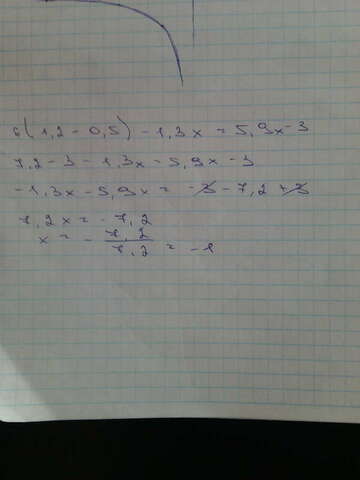 6(1,2-0,5)-1,3x=5,9x-3
7,2-3-1,3x-5,9x-3
-1,3x-5,9x=-3-7,2+3
7,2x=-7,2
x=-7,2/7,2=-1